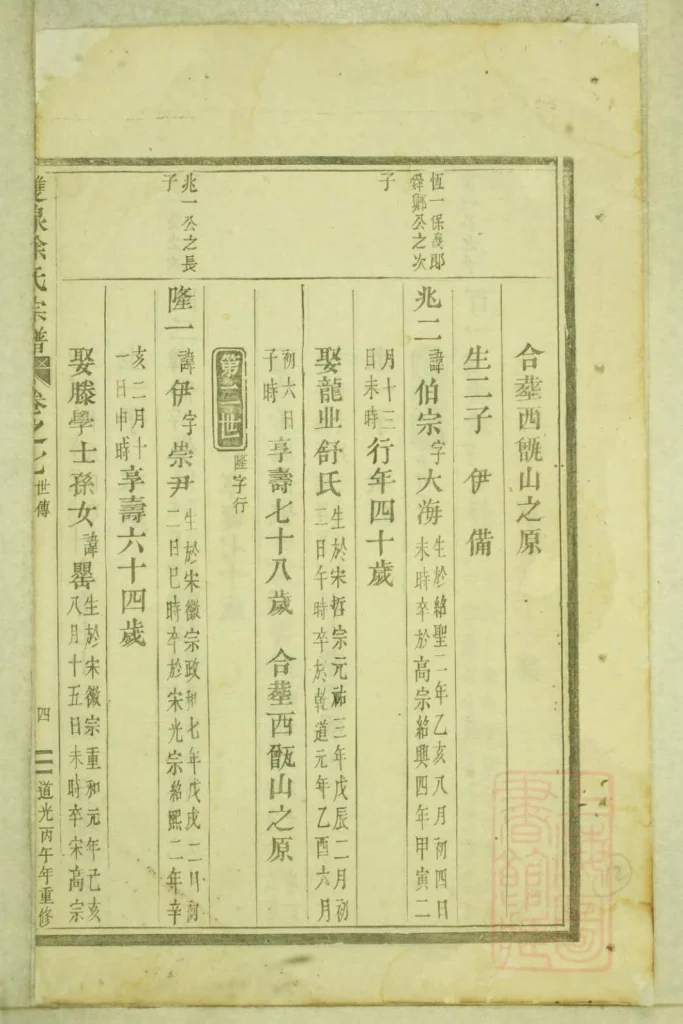 合塟西甑山之原
生二子 伊 備
恆一保義郎
舜鄉公之次
子
兆二 諱伯宗字大海 生於紹聖二年乙亥八月初四日
未時卒於高宗紹興四年甲寅二
月十三
日未時 行年四十歲
娶龍业舒氏 生於宋哲宗元祐三年戊辰二月初
三日午時卒於乾道元年乙酉六月
初六日
子時 享壽七十八歲 合塟西甑山之原
第二世 隆字行
兆一公之長
子
隆一 諱伊字崇尹 生於宋徽宗政和七年戊戌二月初
二日巳時卒於宋光宗紹熙二年辛
亥二月十
一日申時 享壽六十四歲
娶滕學士孫女諱罍 生於宋徽宗重和元年己亥
八月十五日未時卒宋高宗
雙泉徐氏宗譜 卷之七 世傳 四 道光丙午年重修